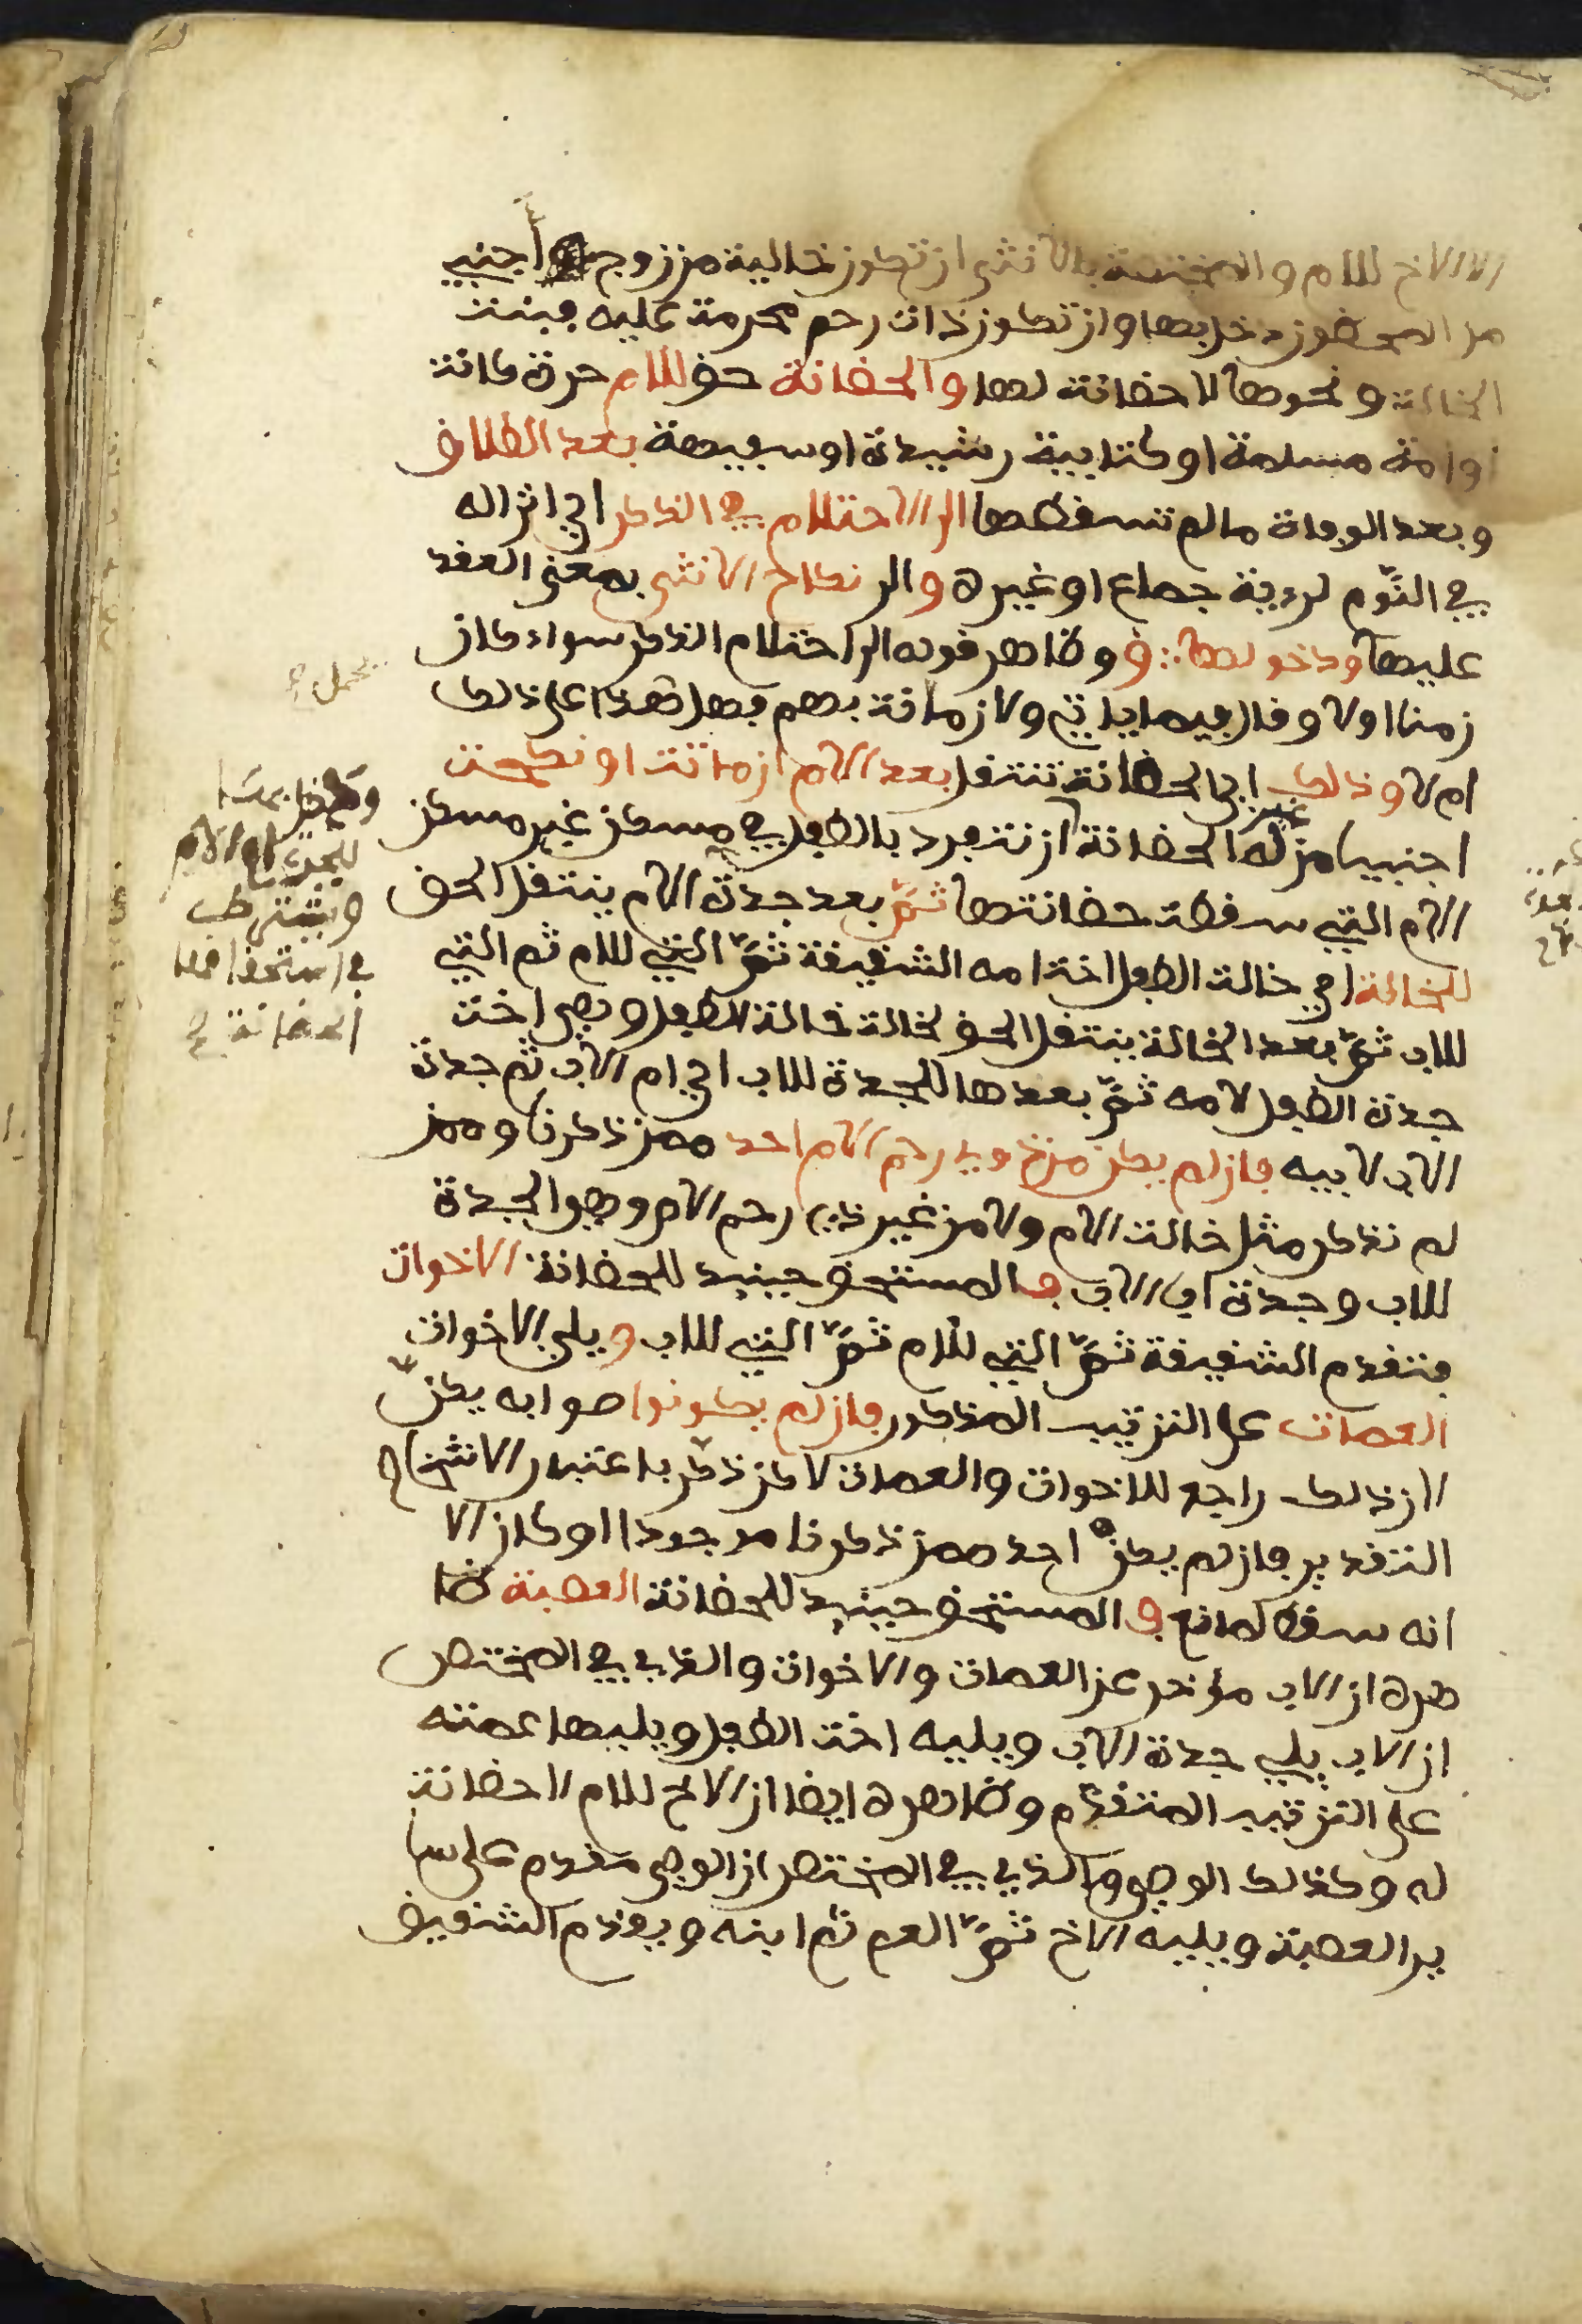 الا الاخ للام والمختصة بالانثى ان تكون خالية من زوج أجنبي
من المحضون دخل بها وان تكون ذات رحم محرمة عليه فبنت
الخالة ونحوها لا حضانة لها والحضانة حق للام حرة كانت
او امة مسلمة او كتابية رشيدة او سفيهة بعد الطلاق
وبعد الوفاة ما لم تسقطها الى الاحتلام في الذكر اي انزاله
في النوم لرءية جماع او غيره والى نكاح الانثى بمعنى العقد
عليها ودخولها ∴ ق وظاهر قوله الى احتلام الذكر سواء كان
زمنا اولا وقال فيما ياتي ولا زمانة بهم فهل هذا على ذلك
ام لا وذلك اي الحضانة تنتقل بعد الام ان ماتت او نكحت
اجنبيا من له الحضانة غير ان تنفرد بالطفل في مسكن غير مسكن
الام التي سقطت حضانتها ثمّ بعد جدة الام ينتقل الحق
للخالة اي خالة الطفل اخت امه الشقيقة ثمّ التي للام ثم التي
للاب ثمّ بعد الخالة ينتقل الحق لخالة خالة الطفل وهي اخت
جدة الطفل لامه ثمّ بعدها للجدة للاب اي ام الاب ثم جدة
الاب لابيه فان لم يكن من ذوي رحم الام احد ممن ذكرنا وممن
لم نذكر مثل خالت الام ولا من غير ذي رحم الام وهو الجدة
للاب وجدة اب الاب فالمستحق حينيد للحضانة الاخوات
فتقدم الشقيقة ثمّ التي للام ثمّ التي للاب ويلي الاخوات
العمات على الترتيب المذكور فان لم يكونوا صوابه يكنّ
لان ذلك راجع للاخوات والعمات لاكن ذكر باعتبار الاشخاص
التقدير فان لم يكن احد ممن ذكرنا موجودا او كان الا
انه سقط لمانع فالمستحق حينيد للحضانة العصبة ظا
هره ان الاب مؤخر عن العمات والاخوات والذي في المختصر
ان الاب يلي جدة الاب ويليه اخت الطفل ويليها عمته
على الترتيب المتقدم وظاهره ايضا ان الاخ للام لا حضانة
له وكذلك الوصي والذي في المختصر ان الوصي مقدم على سا
ير العصبة ويليه الاخ ثمّ العم ثم ابنه ويقدم الشقيق
ويشترط
في استحقاقها
الحضانة